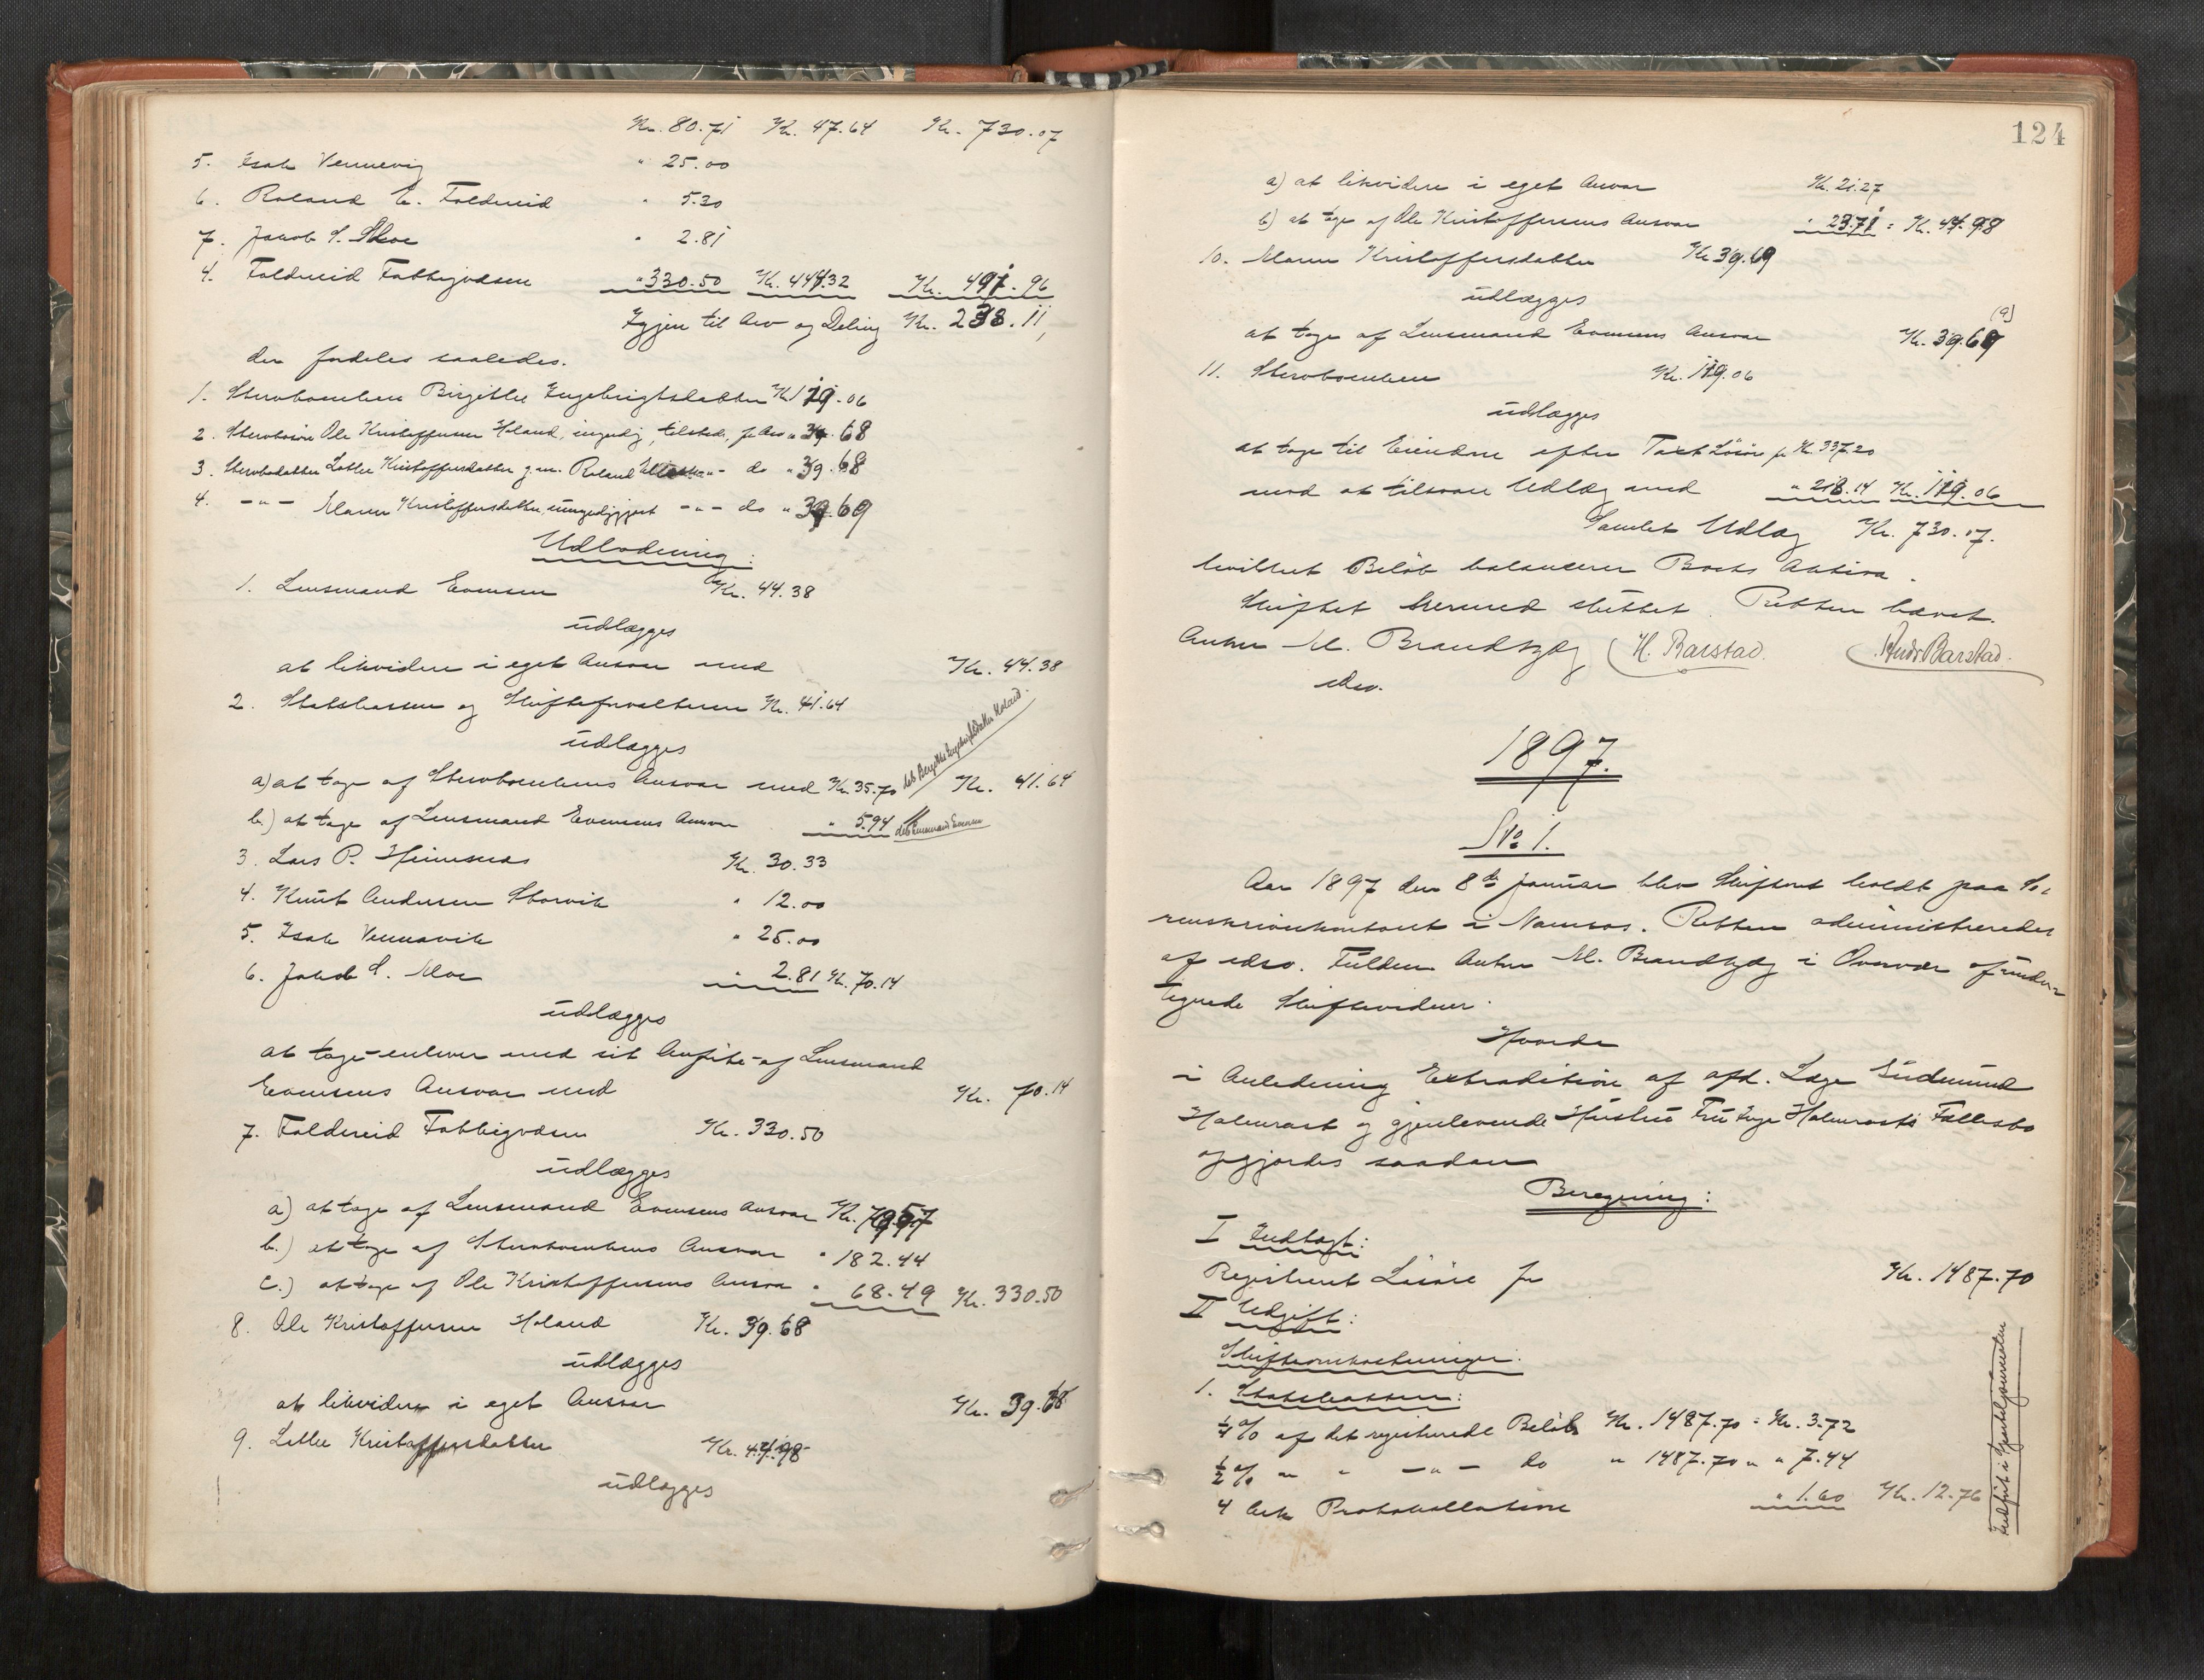 Kr. 80.71 Kr. 47.64 Kr. 730.07
5. Isak Vennevig " 25.00
6. Roland E. Foldereid " 5.30
7. Jakob S. Moe " 2.81
4. Foldereid Fattigvæsen " 330.50 Kr. 444.32 Kr. 491.96
Igjen til Arv og Deling Kr. 238.11,
der fordeles saaledes.
1. Stervboenken Birgitte Ingebrigtsdatter Kr. 119.06
2. Stervbosøn Ole Kristoffersen Holand, myndig, tilstede, for Arv " 39.68
3. Stervbodatter Lotter Kristoffersdatter g.m. Roland -"- do " 39.68
4. -"- Maren Kristoffersdatter, umyndig, ugift -"- do " 39.69
Udlodning:
1. Lensmand Evensen Kr. 44.38
udlægges
at likvidere i eget Ansvar med Kr. 44.38
2. Statskassen og Skifteforvalteren Kr. 41.64
udlægges
a) at tage af Stervboenkens Ansvar med Kr. 35.70 Kr. 41.64
b.) at tage af Lensmand Evensens Ansvar " 5.94
3. Lars P. Heimsnes Kr. 30.33
4. Knut Andersen Storvik " 12.00
5. Isak Vennevik " 25.00
6. Jakob S. Moe " 2.81 Kr. 70.14
udlægges
at tage - enhver med sit Anførte - af Lensmand
Evensens Ansvar med Kr. 70.14
7. Foldereid Fattigvæsen Kr. 330.50
udlægges
a) at tage af Lensmand Evensens Ansvar Kr. 79.57
b.) at tage af Stervboenkens Ansvar " 182.44
c.) at tage af Ole Kristoffersens Ansvar " 68.49 Kr. 330.50
8. Ole Kristoffersen Holand Kr. 39.68
udlægges
at likvidere i eget Ansvar Kr. 39.68
9. Lotter Kristoffersdatter Kr. 44.98
udlægges
124
a) at likvidere i eget Ansvar Kr. 21.27
b) at tage af Ole Kristoffersens Ansvar " 23.71 = Kr. 44.98
10. Maren Kristoffersdatter Kr. 39.69
udlægges
(9)
at tage af Lensmand Evensens Ansvar Kr. 39.69
11. Stervboenken Kr. 119.06
udlægges
at tage til Eiendom efter Taxt Løsøre for Kr. 337.20
mod at tilsvare Udlæg med " 218.14 Kr. 119.06
Samlet Udlæg Kr. 730.07.
hvilket Beløb balancerer Boets Aktiva.
Skiftet hermed sluttet. Retten hævet.
Anton M. Brandtzæg H. Barstad. Andr Barstad.
edsv.
1897.
No 1.
Aar 1897 den 8de Januar blev Skifteret holdt paa So-
renskriverkontoret i Namsos. Retten administreredes
af edsv. Fuldm. Anton M. Brandtzæg i Overvær af under-
tegnede Skiftevidner.
Hvorda
i Anledning Extradition af afd. Læge Gudmund
Holmrast og gjenlevende Hustru Fru Inga Holmrasts Fællesbo
opgjordes saadan
Beregning:
I Indtægt:
Registreret Løsøre for Kr. 1487.70
II Udgift:
Skifteomkostninger.
1. Statskassen:
1/4 % af det registrerede Beløb Kr. 1487.70 = Kr. 3.72
1/2 % " " -"- do " 1487.70 " " 7.44
4 Ark Protokollation " 1.60 Kr. 12.76